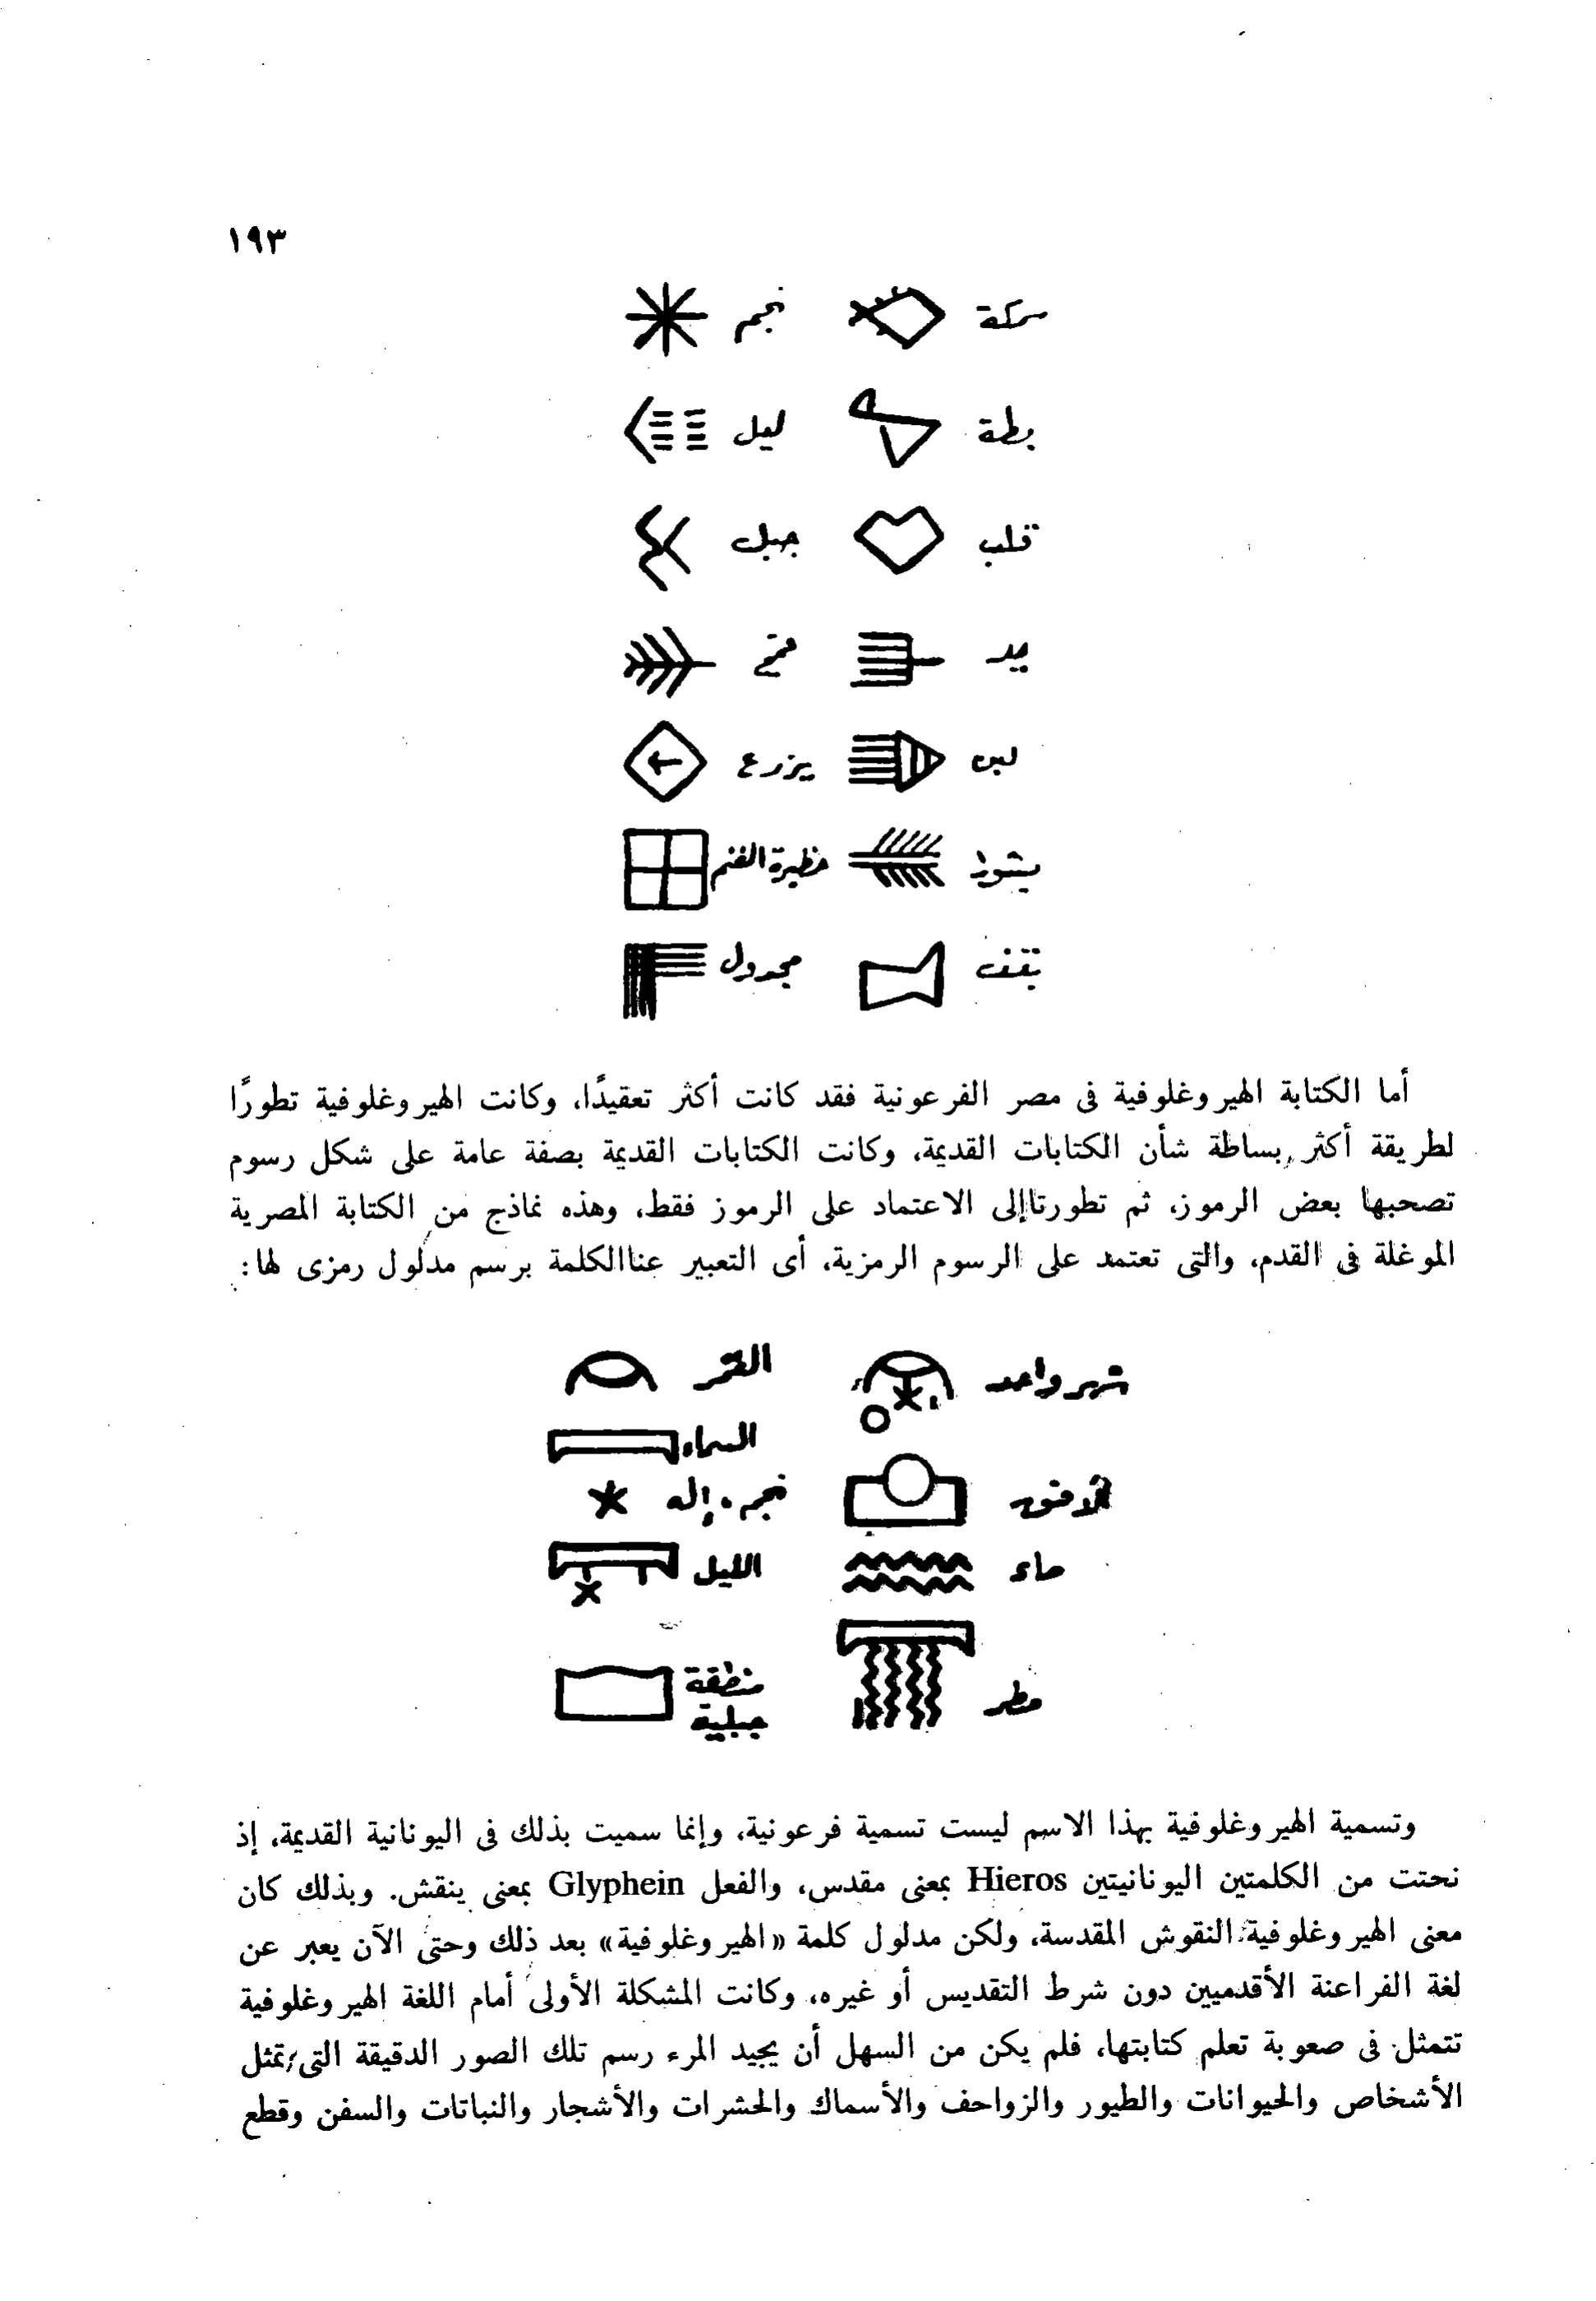 ١٩٣
سمكة نجم
بطة ليل
قلب جبل
يد قمح
لبن يزرع
حظيرة الغنم
يقف مجدول
أما الكتابة الهيروغلوفية فى مصر الفرعونية فقد كانت أكثر تعقيدًا، وكانت الهيروغلوفية تطورًا
لطريقة أكثر بساطة شأن الكتابات القديمة، وكانت الكتابات القديمة بصفة عامة على شكل رسوم
تصحبها بعض الرموز، ثم تطورت إلى الاعتماد على الرموز فقط، وهذه نماذج من الكتابة المصرية
الموغلة فى القدم، والتى تعتمد على الرسوم الرمزية، أى التعبير عن الكلمة برسم مدلول رمزى لها:
شهر واحد القمر
السماء
الأفق نجم، إله
ماء الليل
مطر منطقة
جبلية
وتسمية الهيروغلوفية بهذا الاسم ليست تسمية فرعونية، وإنما سميت بذلك فى اليونانية القديمة، إذ
نحتت من الكلمتين اليونانيتين Hieros بمعنى مقدس، والفعل Glyphein بمعنى ينقش. وبذلك كان
معنى الهيروغلوفية: النقوش المقدسة، ولكن مدلول كلمة «الهيروغلوفية» بعد ذلك وحتى الآن يعبر عن
لغة الفراعنة الأقدميين دون شرط التقديس أو غيره، وكانت المشكلة الأولى أمام اللغة الهيروغلوفية
تتمثل فى صعوبة تعلم كتابتها، فلم يكن من السهل أن يجيد المرء رسم تلك الصور الدقيقة التى تمثل
الأشخاص والحيوانات والطيور والزواحف والأسماك والحشرات والأشجار والنباتات والسفن وقطع